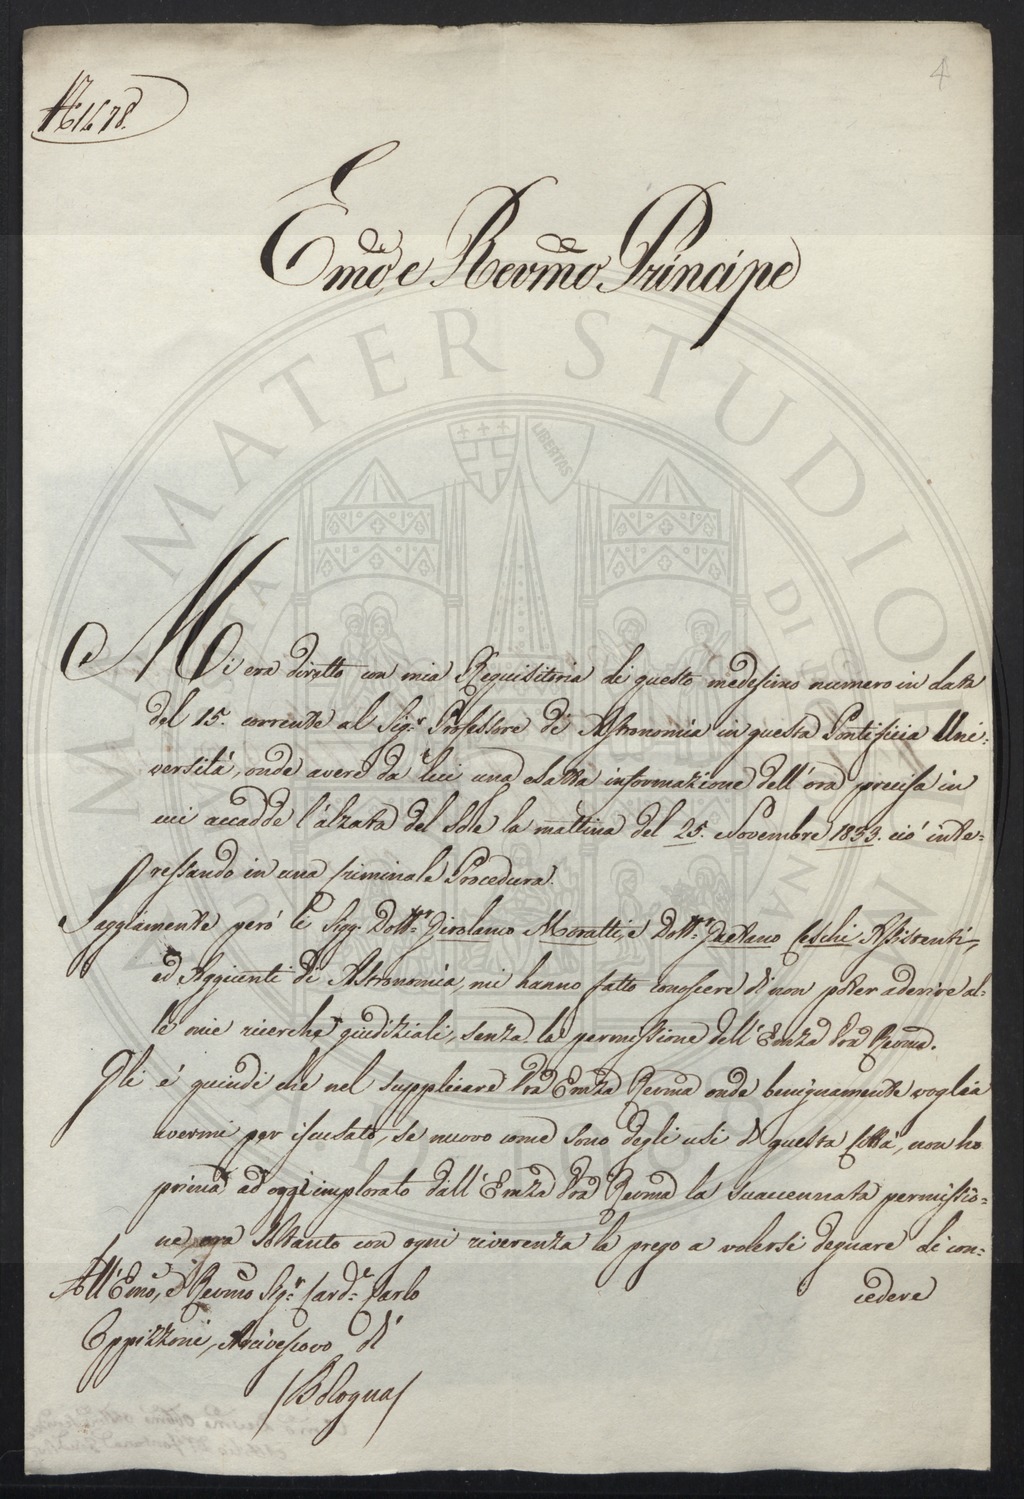 4
N. 1478.
Emõ, e Revm̃o Principe
Mi era diretto con mia Requisitoria di questo medesimo numero in data
del 15. corrente al Sig.r Professore di Astronomia in questa Pontificia Uni=
versità, onde avere da lui una esatta informazione dell'ora precisa in
cui accadde l'alzata del Sole la mattina del 25. Novembre 1853. ciò inte=
ressando in una criminale Procedura.
Saggiamente però li Sigg. Dott.r Girolamo Moratti, e Dott.r Gaetano Ceschi Assistenti,
ed Aggiunti di Astronomia, mi hanno fatto conoscere di non poter aderire al=
le mie ricerche giudiziali, senza la permissione dell'Emza Vrã Revma.
Gli è quindi che nel supplicare Vrã Emza Revma onde benignamente voglia
avermi per iscusato, se nuovo come sono degli usi di questa Città, non ho
prima ad oggi implorato dall'Emza Vrã Revma la suaccennata permissio=
ne, ora soltanto con ogni riverenza la prego a volersi degnare di con=
cedere
All'Emo, e Revmo Sig.r Card.e Carlo
Oppizzoni, Arcivescovo di
/Bologna/
ALMA MATER STUDIORUM
LIBERTAS